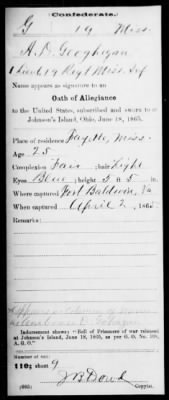 Confederate.
G 19 Miss.
A. D. Geoghegan
1 Lieut, 19 Reg't Miss. Inf
Name appears as signature to an
Oath of Allegiance
to the United States, subscribed and sworn to at
Johnson's Island, Ohio, June 18, 1865.
Place of residence Fayette, Miss.
Age 25
Complexion Fair ; hair Light
Eyes Blue ; height 5 ft. 5 in.
Where captured Fort Baldwin, Va
When captured April 2, 1865
Remarks:
Indorsement shows: "Roll of Prisoners of war released
at Johnson's Island, June 18, 1865, as per G. O. No. 109,
A. G. O."
Number of roll:
110; sheet 9
J B Doud
Copyist.